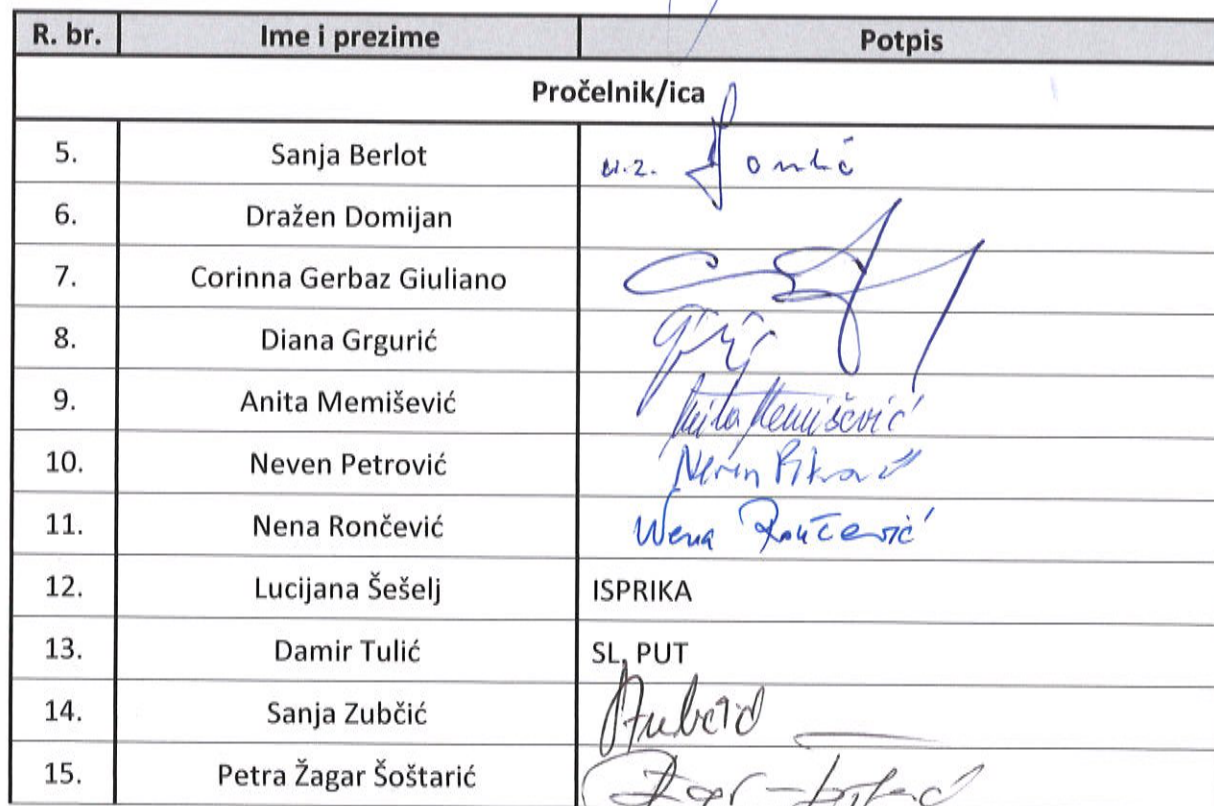 R. br. Ime i prezime Potpis
Pročelnik/ica
5. Sanja Berlot
6. Dražen Domijan
7. Corinna Gerbaz Giuliano
8. Diana Grgurić
9. Anita Memišević Anita Memišević
10. Neven Petrović Neven
11. Nena Rončević Nena Rončević
12. Lucijana Šešelj ISPRIKA
13. Damir Tulić SL, PUT
14. Sanja Zubčić
15. Petra Žagar Šoštarić